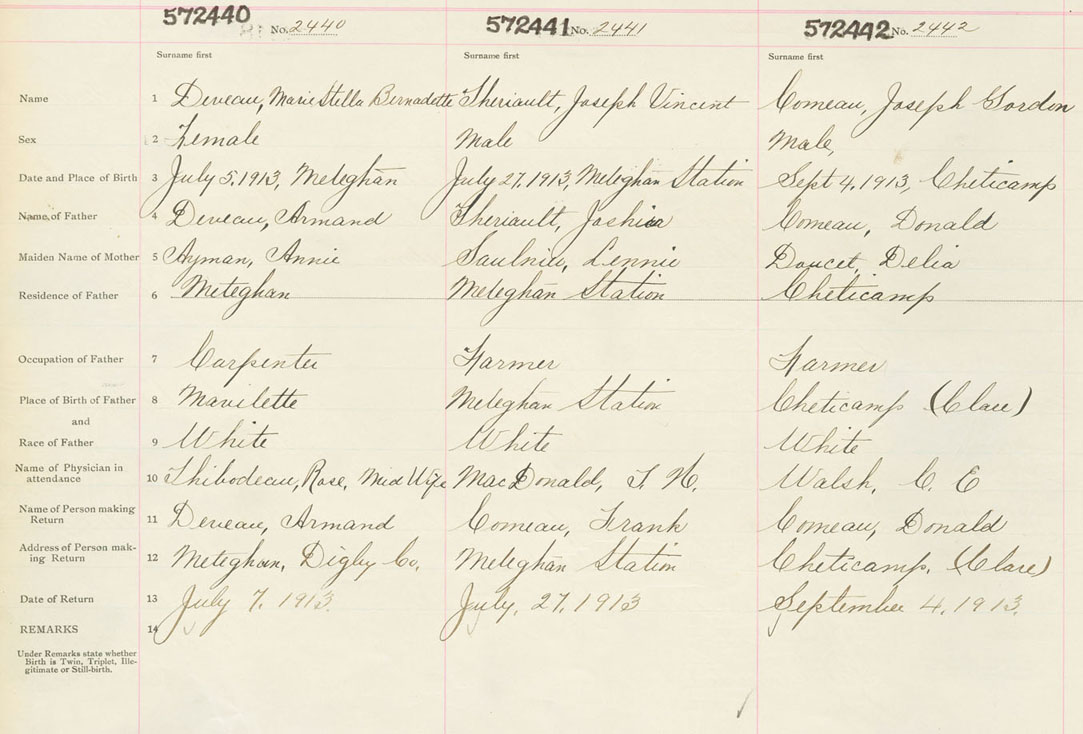 572440 No. 2440 572441 No. 2441 572442 No. 2442
Surname first Surname first Surname first
Name 1 Deveau, Marie Stella Bernadette Theriault, Joseph Vincent Comeau, Joseph Gordon
Sex 2 Female Male Male,
Date and Place of Birth 3 July 5, 1913, Meteghan July 27, 1913, Meteghan Station Sept 4, 1913, Cheticamp
Name of Father 4 Deveau, Armand Theriault, Comeau, Donald
Maiden Name of Mother 5 Annie Saulnier, Lennie Doucet, Delia
Residence of Father 6 Meteghan Meteghan Station Cheticamp
Occupation of Father 7 Carpenter Farmer Farmer
Place of Birth of Father 8 Mavilette Meteghan Station Cheticamp (Clare)
and
Race of Father 9 White White White
Name of Physician in
attendance 10 Thibodeau, Rose, Mid Wife MacDonald, Walsh, C. E
Name of Person making
Return 11 Deveau, Armand Comeau, Frank Comeau, Donald
Address of Person mak-
ing Return 12 Meteghan, Digby Co. Meteghan Station Cheticamp, (Clare)
Date of Return 13 July 7, 1913. July, 27, 1913 September 4, 1913.
REMARKS 14
Under Remarks state whether
Birth is Twin, Triplet, Ille-
gitimate or Still-birth.